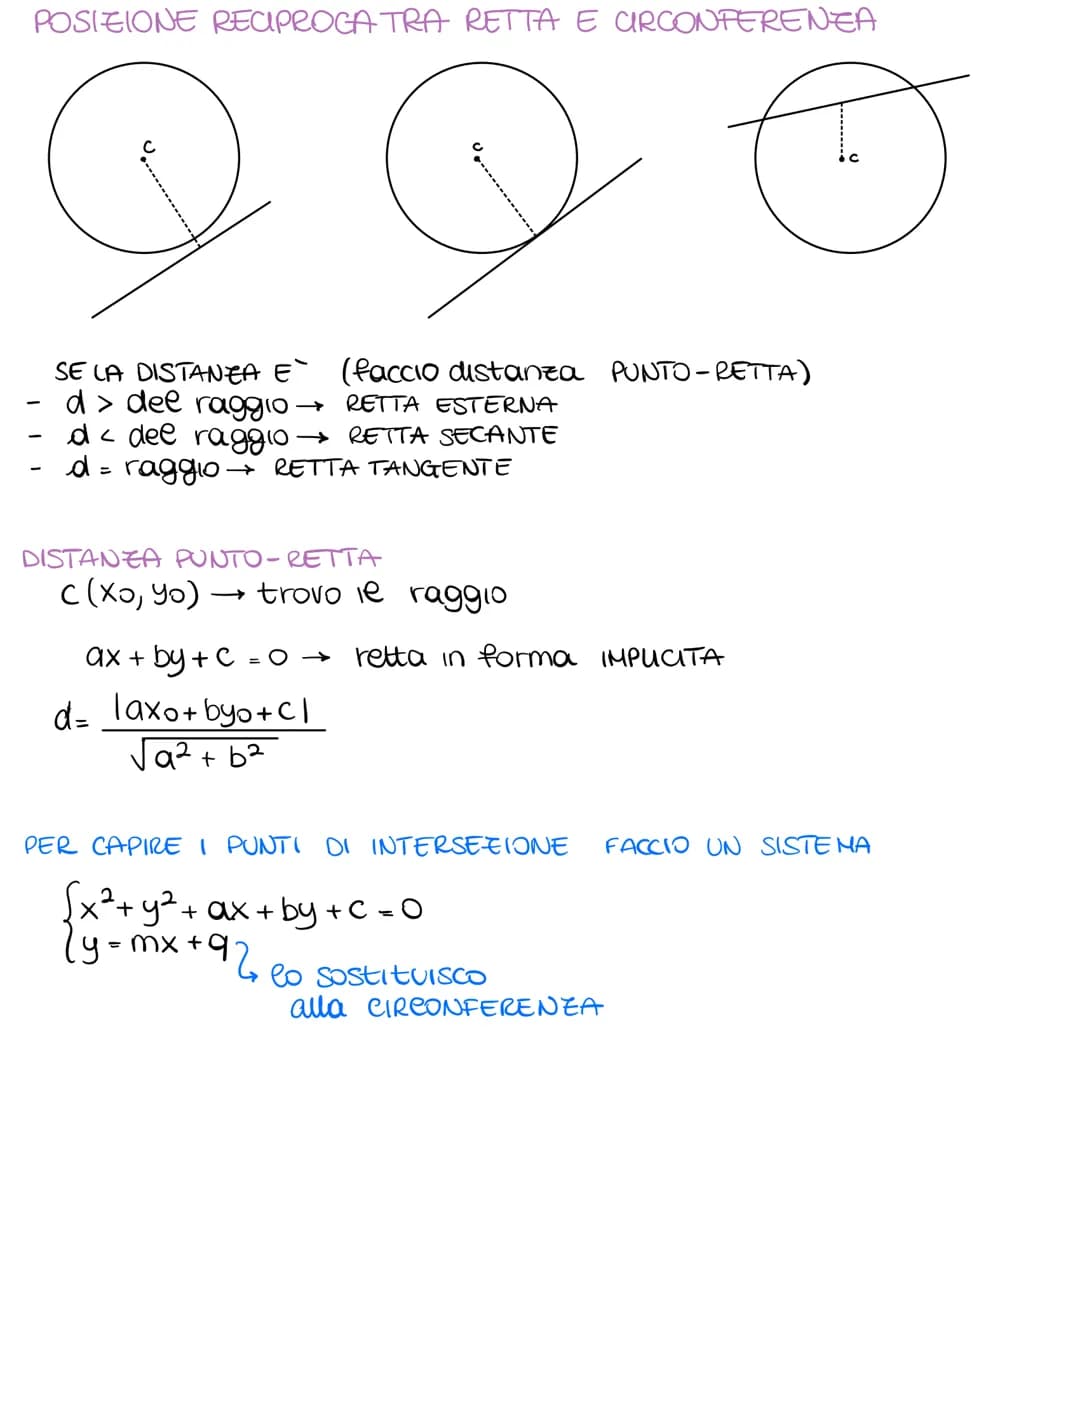 POSIZIONE RECIPROCA TRA RETTA E CIRCONFERENZA
C
C
C
SE LA DISTANZA E` (faccio distanza PUNTO-RETTA)
- d > del raggio → RETTA ESTERNA
- d < del raggio → RETTA SECANTE
- d = raggio → RETTA TANGENTE
DISTANZA PUNTO-RETTA
C(x0, y0) → trovo il raggio
ax + by + c = 0 → retta in forma IMPLICITA
d= |ax0+by0+c|
√a² + b²
PER CAPIRE I PUNTI DI INTERSEZIONE FACCIO UN SISTEMA
{x²+y²+ax+by+c=0
y=mx+q
↳ lo SOSTITUISCO
alla CIRCONFERENZA